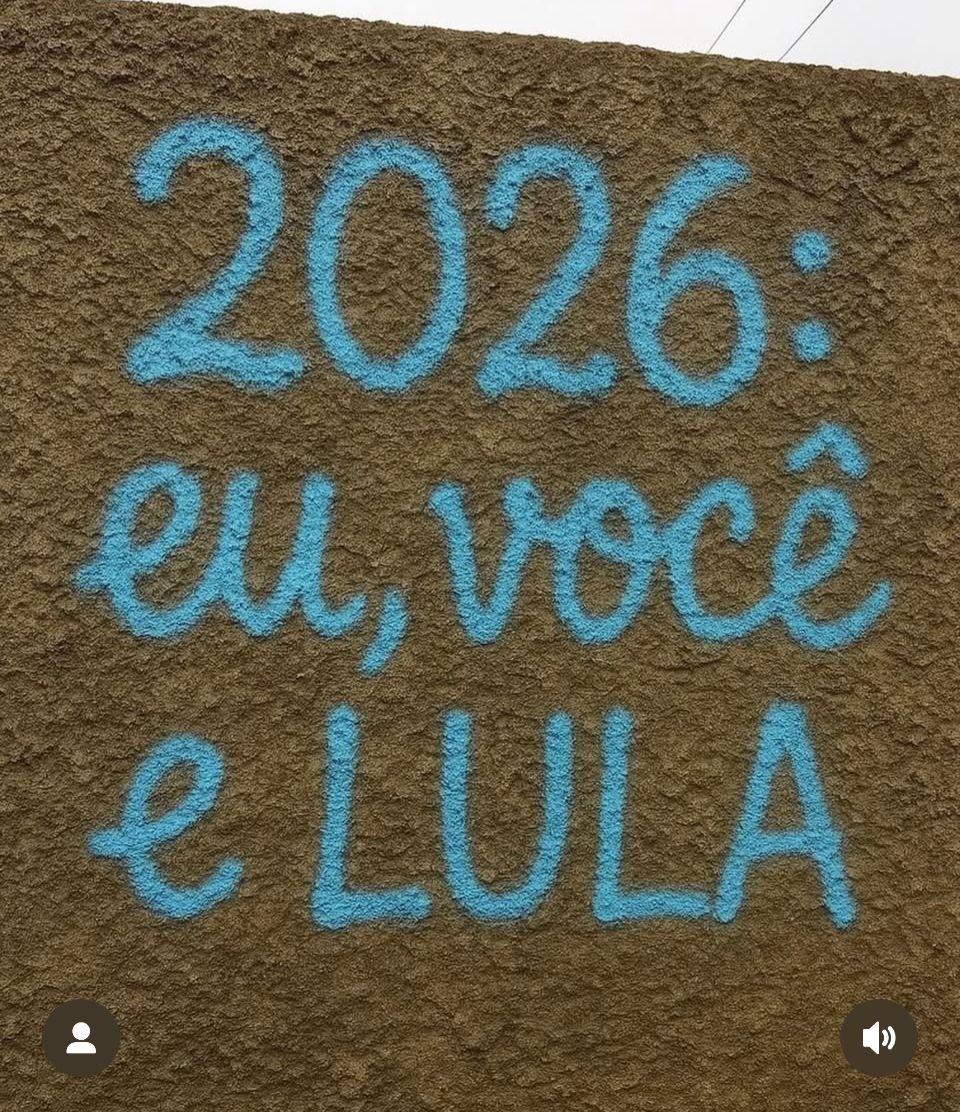 2026:
eu, você
e LULA